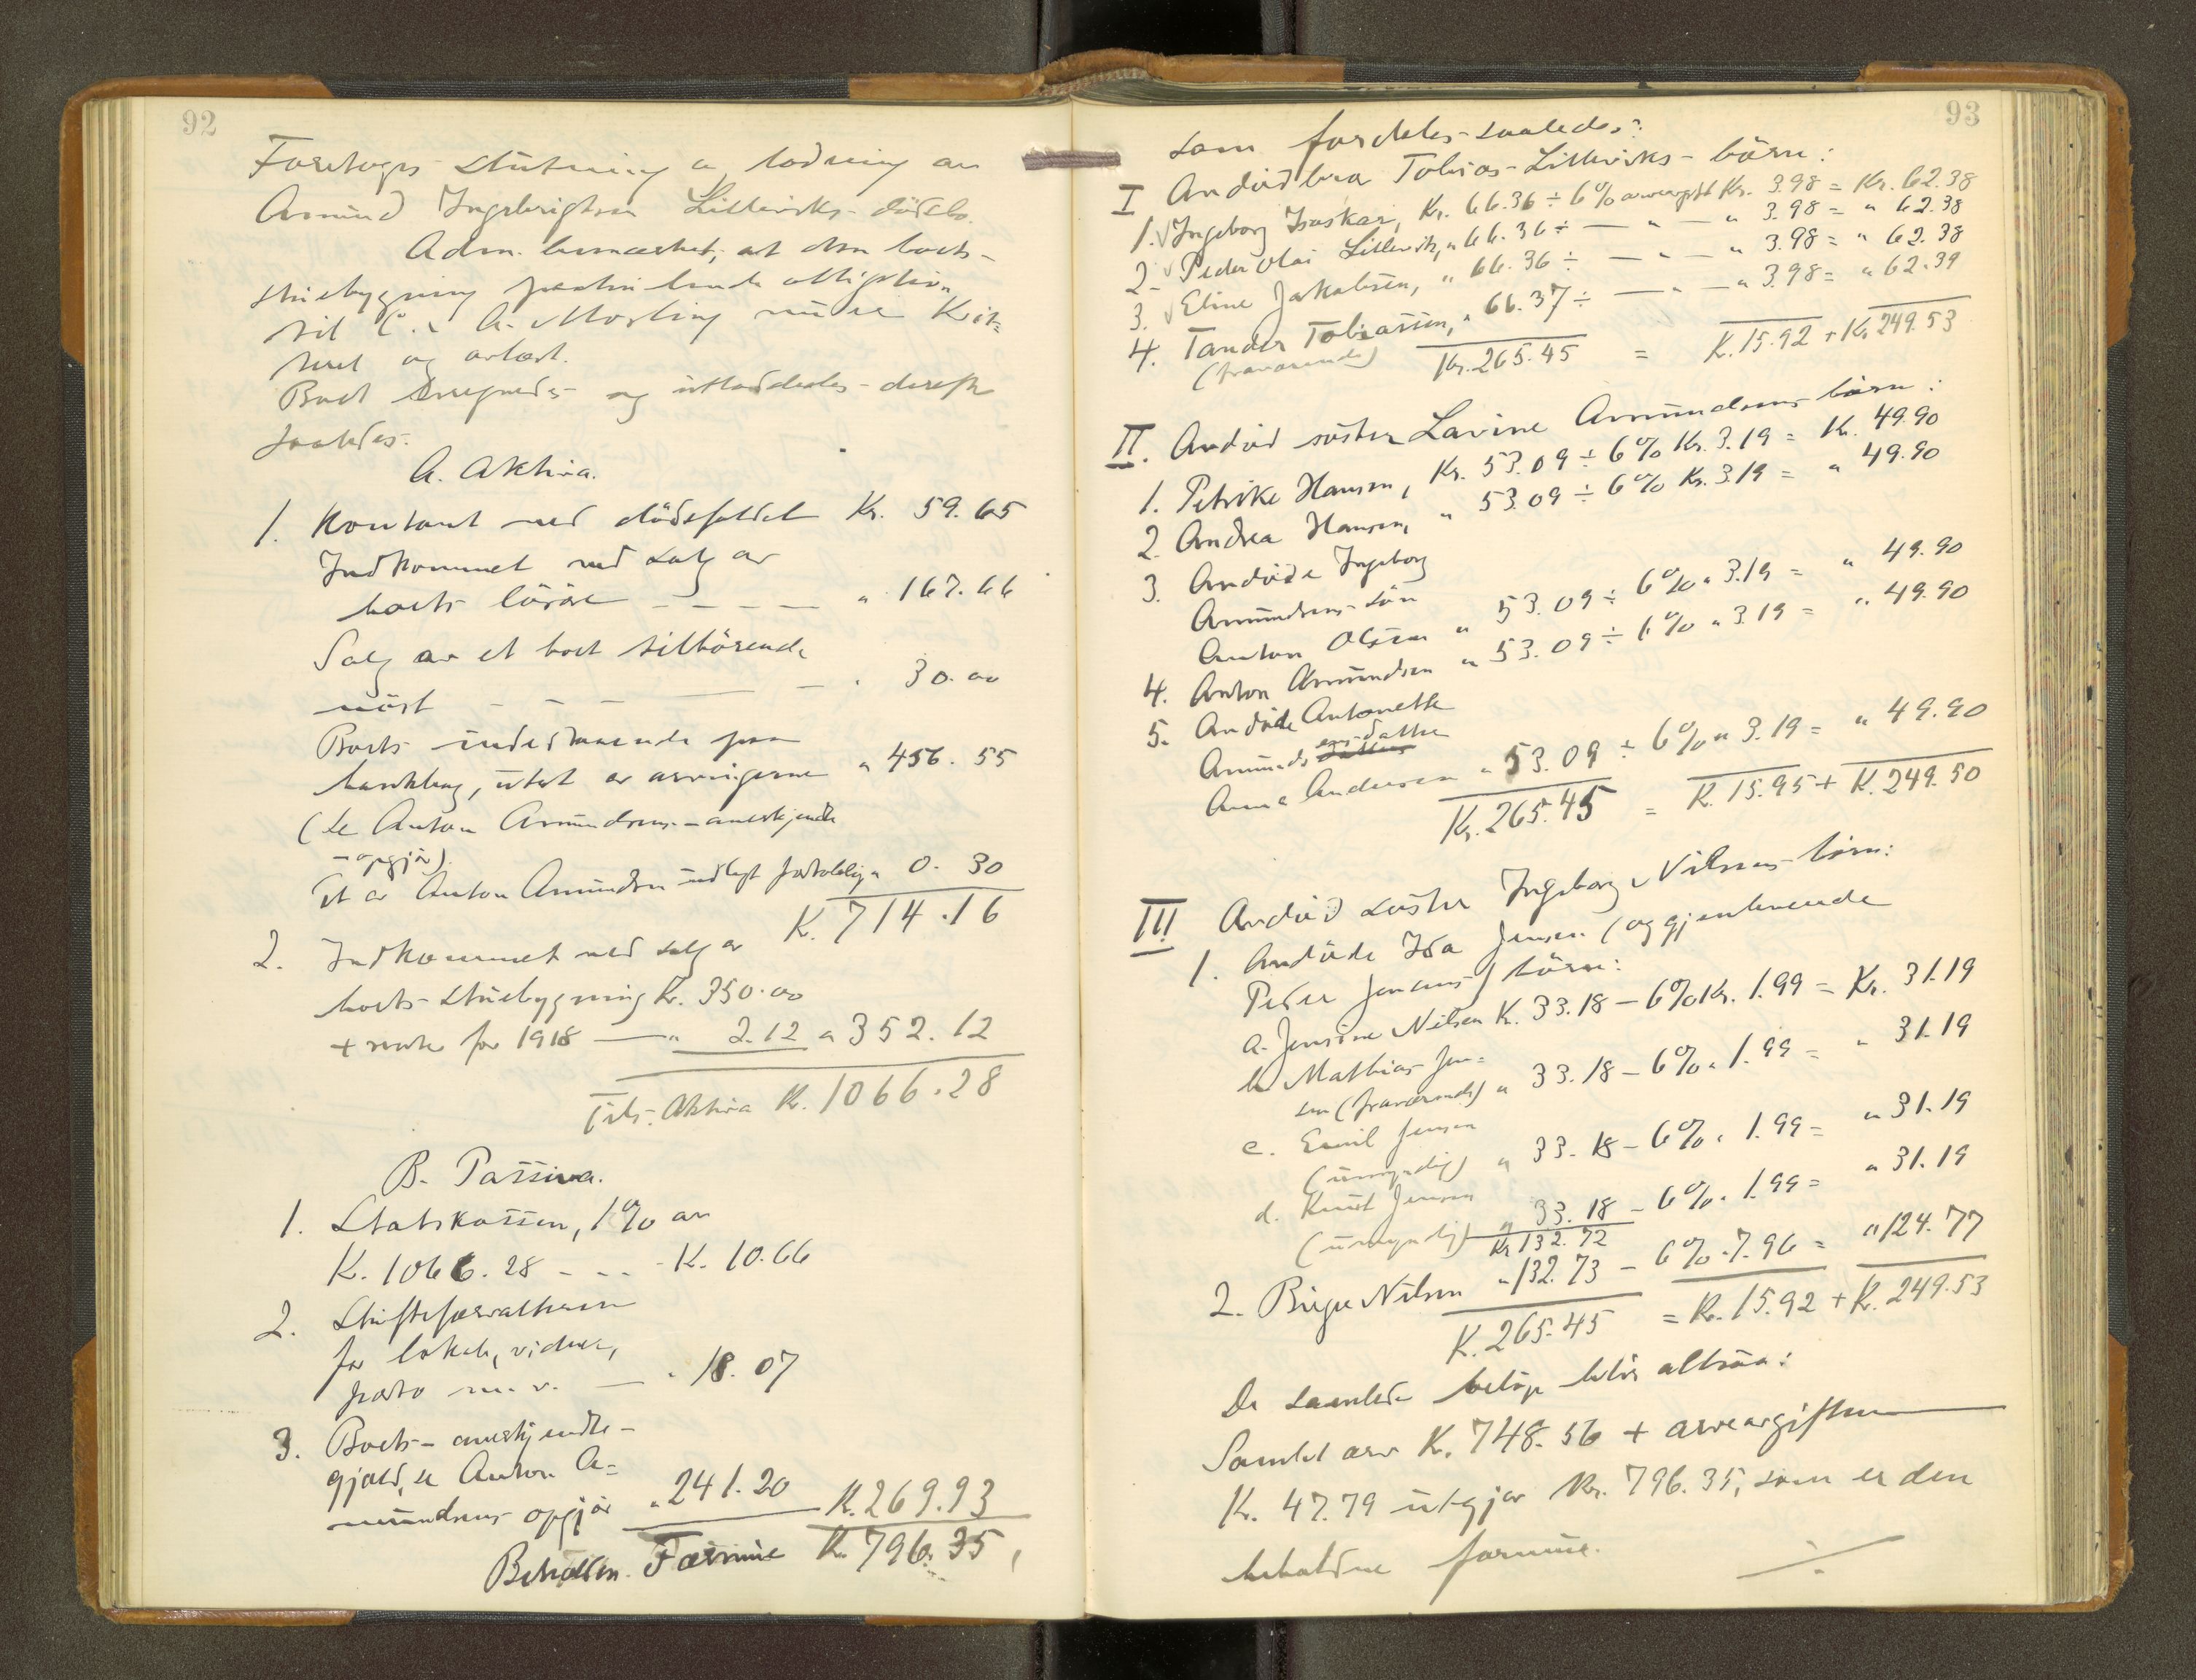 92
Foretoges slutning
Amund Ingebrigtsen Littleviks dödsbo.
Adm. bemærket, at den boets
stuebygning
til
teret og avlæst.
Boet og utloddedes derefter
saaledes:
A. Aktiva.
1. Kontant ved dödsfaldet Kr. 59.65
Indkommet ved salg av
boets lösöre - - - - " 167.66
Salg av et boet tilhörende
nöst - - - " 30.00
Boets indestaaende paa
bankbog, utført av arvingerne " 456.55
(se Anton Amundsens anerkjendte
opgjør).
Et av Anton Amundsen indlagt 0.30
K. 714.16
2. Indkommet ved salg av
boets stuebygning Kr. 350.00
+ rente for 1918 — " 2.12 " 352.12
Tils. Aktiva K. 1066.28
B. Passiva.
1. Statskassen, 1% av
K. 1066.28 - - - K. 10.66
2. Skifteforvalteren
for lokale, vidner,
porto m. v. — " 18.07
3. Boets anerkjendte
gjæld, se Anton A=
mundsens opgjør " 241.20 K. 269.93
Beholden Formue K. 796.35
93
som fordeles saaledes:
I Avdöd bror Tobias Litleviks börn:
1. Ingeborg Isaksen, Kr. 66.36 ÷ 6% arveavgift Kr. 3.98 = Kr. 62.38
2. Peder Olai Litlevik, " 66.36 ÷ — " — " 3.98 = " 62.38
3. Eline Jakobsen, " 66.36 ÷ — " — " 3.98 = " 62.38
4. Tander Tobiassen, " 66.37 ÷ — " — " 3.98 = " 62.39
(fraværende) Kr. 265.45 = K. 15.92 + K. 249.53
II. Avdöd söster Lavine Amundsens börn:
1. Petrike Hansen, Kr. 53.09 ÷ 6% Kr. 3.19 = Kr. 49.90
2. Andrea Hansen, " 53.09 ÷ 6% Kr. 3.19 = " 49.90
3. Avdöde Ingeborg
Amundsens sön
Anton Olsen " 53.09 ÷ 6% " 3.19 = " 49.90
4. Anton Amundsen " 53.09 ÷ 6% " 3.19 = " 49.90
5. Avdöde Antonette
Amundsens datter
Anna Andersen " 53.09 ÷ 6% " 3.19 = " 49.90
Kr. 265.45 = K. 15.95 + K. 249.50
III Avdöd söster Ingeborg Nilsens börn:
1. Avdöde Ida Jensen (og gjenlevende
Peder Jensens) börn:
a. Jensine Nilsen K. 33.18 – 6% Kr. 1.99 = Kr. 31.19
b. Mathias Jen=
sen (fraværende) " 33.18 – 6% " 1.99 = " 31.19
c. Emil Jensen
(umyndig) " 33.18 – 6% " 1.99 = " 31.19
d. Knut Jensen
(umyndig) " 33.18 – 6% " 1.99 = " 31.19
Kr. 132.72
2. Birger Nilsen " 132.73 – 6% " 7.96 = " 124.77
K. 265.45 = Kr. 15.92 + K. 249.53
De samlede beløp blir altsaa:
Samlet arv K. 748.56 + arveavgiften
Kr. 47.79 utgjør Kr. 796.35, som er den
beholdne formue.